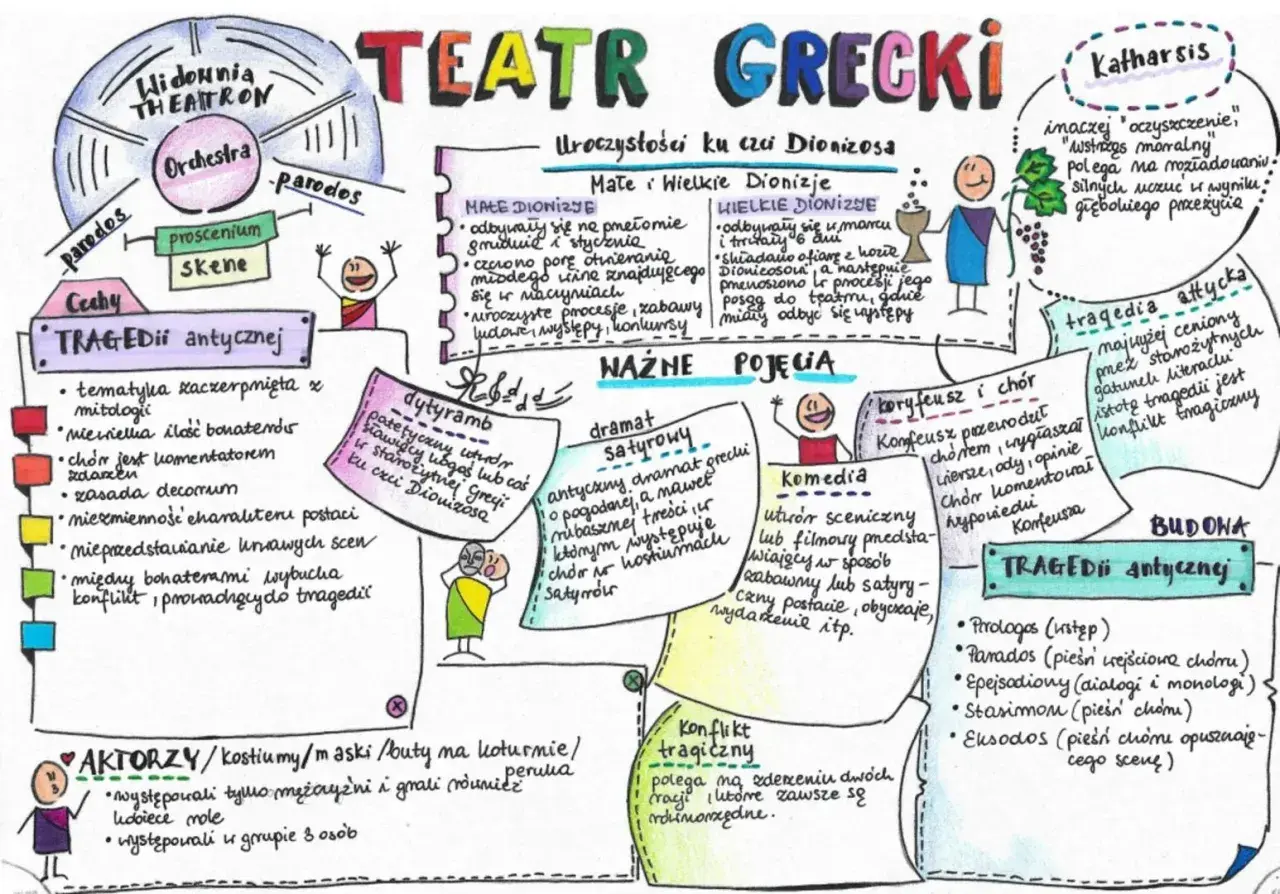 TEATR GRECKI
Widownia
THEATRON
Orchestra
parodos
parodos
proscenium
skene
Uroczystości ku czci Dionizosa
Małe i Wielkie Dionizje
MAŁE DIONIZJE
• odbywały się na przełomie
grudnia i stycznia
• czczono porę otwierania
młodego wina znajdującego
się w naczyniach
• uroczyste procesje, zabawy
ludowe, występy, konkursy
WIELKIE DIONIZJE
• odbywały się w marcu
i trwały 6 dni
• składano ofiarę z kozła
Dionizosowi, a następnie
przenoszono w procesji jego
posąg do teatru, gdzie
miały odbyć się występy
Katharsis
inaczej "oczyszczenie",
"wstrząs moralny"
polega na rozładowaniu
silnych uczuć w wyniku
głębokiego przeżycia
Cechy
TRAGEDii antycznej
• tematyka zaczerpnięta z
mitologii
• niewielka ilość bohaterów
• chór jest komentatorem
zdarzeń
• zasada decorum
• niezmienność charakteru postaci
• nieprzedstawianie krwawych scen
• między bohaterami wybucha
konflikt, prowadzący do tragedii
WAŻNE POJĘCIA
dytyramb
patetyczny utwór
sławiący kogoś lub coś
w starożytnej Grecji
ku czci Dionizosa
dramat
satyrowy
antyczny dramat grecki
o pogodnej, a nawet
rubasznej treści, w
którym występuje
chór w kostiumach
satyrów
komedia
utwór sceniczny
lub filmowy przedsta-
wiający w sposób
zabawny lub satyry-
czny postacie, obyczaje,
wydarzenia itp.
koryfeusz i chór
Koryfeusz przewodził
chórem, wygłaszał
wiersze, ody, opinie
chór komentował
wypowiedzi
Koryfeusza
tragedia attycka
najwyżej ceniony
przez starożytnych
gatunek literacki
istotą tragedii jest
konflikt tragiczny
BUDOWA
TRAGEDii antycznej
• Prologos (wstęp)
• Parados (pieśń wejściowa chóru)
• Epejsodiony (dialogi i monologi)
• Stasimon (pieśń chóru)
• Eksodos (pieśń chóru opuszczają-
cego scenę)
Konflikt
tragiczny
polega na zderzeniu dwóch
racji, które zawsze są
równorzędne.
AKTORZY/kostiumy/maski/buty na koturnie/
peruka
• występowali tylko mężczyźni i grali również
kobiece role
• występowali w grupie 3 osób